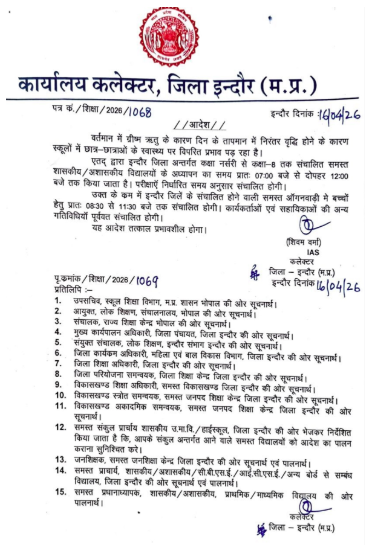 कार्यालय कलेक्टर, जिला इन्दौर (म.प्र.)
पत्र कं./शिक्षा/2026/1068
इन्दौर दिनांक 16/04/26
//आदेश//
वर्तमान में ग्रीष्म ऋतु के कारण दिन के तापमान में निरंतर वृद्धि होने के कारण
स्कूलों में छात्र-छात्राओं के स्वास्थ्य पर विपरित प्रभाव पड़ रहा है।
एतद् द्वारा इन्दौर जिला अन्तर्गत कक्षा नर्सरी से कक्षा-8 तक संचालित समस्त
शासकीय/अशासकीय विद्यालयों के अध्यापन का समय प्रातः 07:00 बजे से दोपहर 12:00
बजे तक किया जाता है। परीक्षाएं निर्धारित समय अनुसार संचालित होगी।
उक्त के कम में इन्दौर जिलें के संचालित होने वाली समस्त ऑगनवाडी मे बच्चों
हेतु प्रातः 08:30 से 11:30 बजे तक संचालित होगी। कार्यकर्ताओं एवं सहायिकाओं की अन्य
गतिविधियॉ पूर्ववत संचालित होगी।
यह आदेश तत्काल प्रभावशील होगा।
(शिवम वर्मा)
IAS
कलेक्टर
जिला – इन्दौर (म.प्र.)
पृ.कमांक/शिक्षा/2026/1069
इन्दौर दिनांक 16/04/26
प्रतिलिपि :–
1. उपसचिव, स्कूल शिक्षा विभाग, म.प्र. शासन भोपाल की ओर सूचनार्थ।
2. आयुक्त, लोक शिक्षण, संचालनालय, भोपाल की ओर सूचनार्थ।
3. संचालक, राज्य शिक्षा केन्द्र भोपाल की ओर सूचनार्थ।
4. मुख्य कार्यपालन अधिकारी, जिला पंचायत, जिला इन्दौर की ओर सूचनार्थ।
5. संयुक्त संचालक, लोक शिक्षण, इन्दौर संभाग इन्दौर की ओर सूचनार्थ।
6. जिला कार्यकम अधिकारी, महिला एवं बाल विकास विभाग, जिला इन्दौर की ओर सूचनार्थ।
7. जिला शिक्षा अधिकारी, जिला इन्दौर की ओर सूचनार्थ।
8. जिला परियोजना समन्वयक, जिला शिक्षा केन्द्र जिला इन्दौर की ओर सूचनार्थ।
9. विकासखण्ड शिक्षा अधिकारी, समस्त विकासखण्ड जिला इन्दौर की ओर सूचनार्थ।
10. विकासखण्ड स्त्रोत समन्वयक, समस्त जनपद शिक्षा केन्द्र जिला इन्दौर की ओर सूचनार्थ।
11. विकासखण्ड अकादमिक समन्वयक, समस्त जनपद शिक्षा केन्द्र जिला इन्दौर की ओर
सूचनार्थ।
12. समस्त संकुल प्राचार्य शासकीय उ.मा.वि./हाईस्कूल, जिला इन्दौर की ओर भेजकर निर्देशित
किया जाता है कि, आपके संकुल अन्तर्गत आने वाले समस्त विद्यालयों को आदेश का पालन
कराना सुनिश्चित करे।
13. जनशिक्षक, समस्त जनशिक्षा केन्द्र जिला इन्दौर की ओर सूचनार्थ एवं पालनार्थ।
14. समस्त प्राचार्य, शासकीय/अशासकीय/सी.बी.एस.ई./आई.सी.एस.ई./अन्य बोर्ड से सम्बंध
विद्यालय, जिला इन्दौर की ओर सूचनार्थ एवं पालनार्थ।
15. समस्त प्रधानाध्यापक, शासकीय/अशासकीय, प्राथमिक/माध्यमिक विद्यालय की ओर
पालनार्थ।
कलेक्टर
जिला – इन्दौर (म.प्र.)